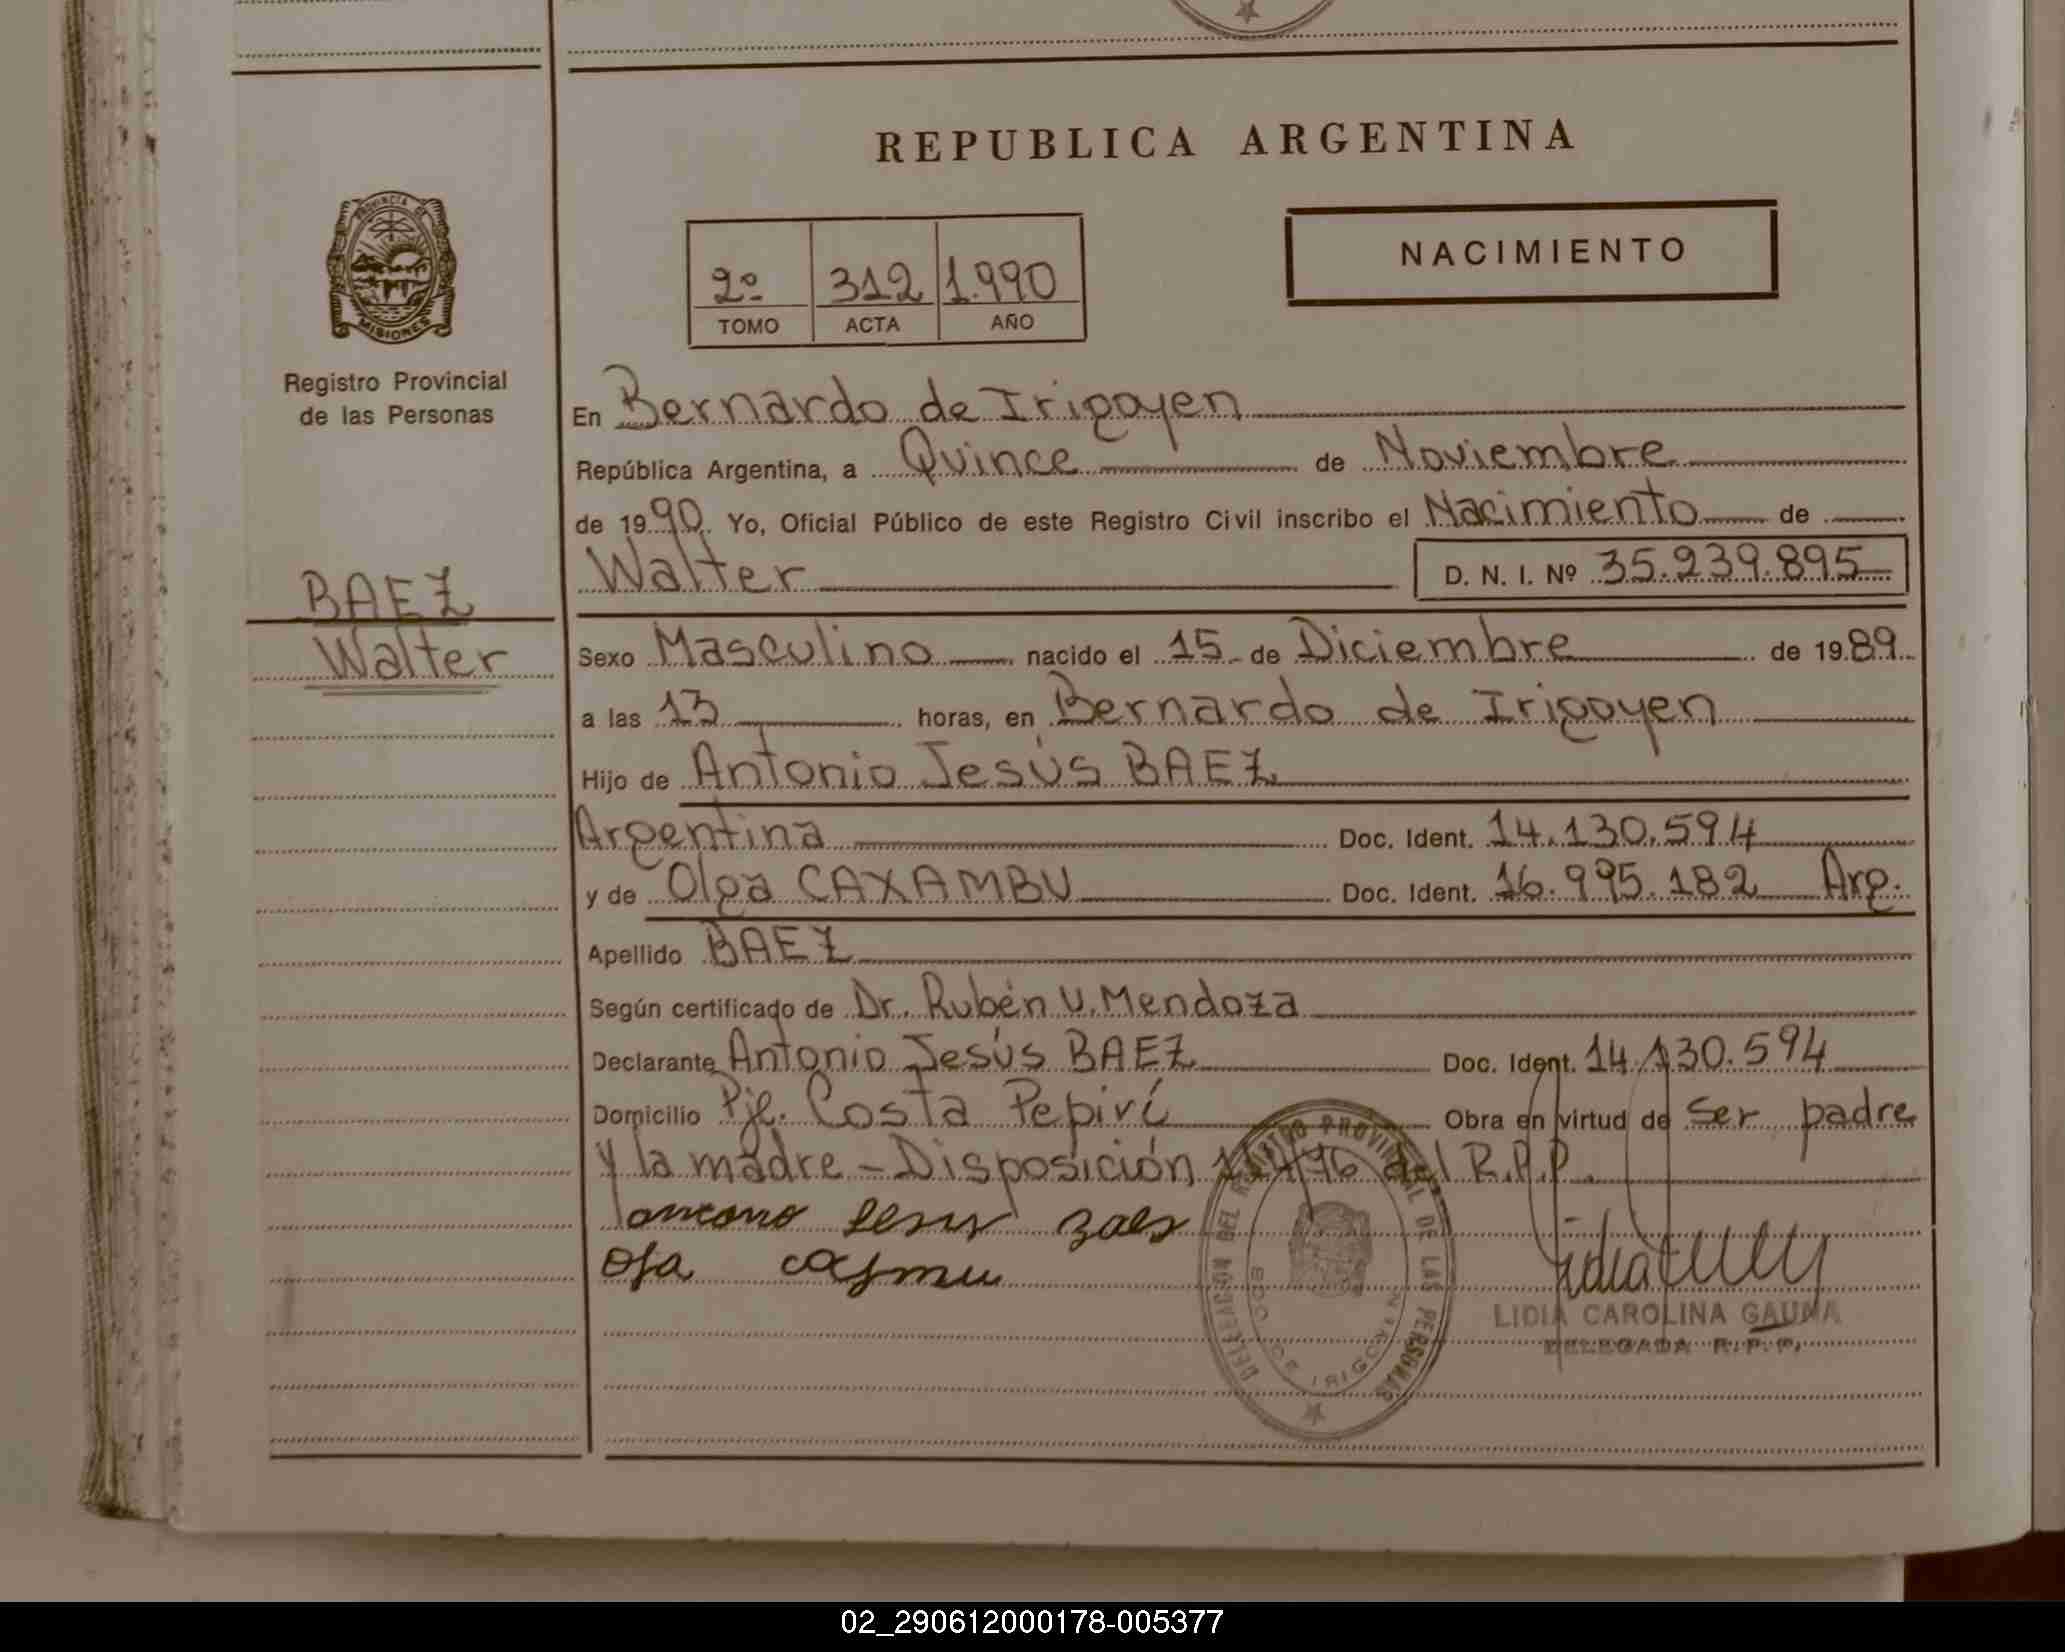 REPUBLICA ARGENTINA
PROVINCIA DE
MISIONES
Registro Provincial
de las Personas
BAEZ
Walter
2º 312 1.990
TOMO ACTA AÑO
NACIMIENTO
En Bernardo de Irigoyen
República Argentina, a Quince de Noviembre
de 1990. Yo, Oficial Público de este Registro Civil inscribo el Nacimiento de
Walter D. N. I. Nº 35.239.895
Sexo Masculino nacido el 15 de Diciembre de 1989
a las 13 horas, en Bernardo de Irigoyen
Hijo de Antonio Jesús BAEZ
Argentina Doc. Ident. 14.130.594
y de Olga CAXAMBU Doc. Ident. 16.995.182 Arg.
Apellido BAEZ
Según certificado de Dr. Rubén U. Mendoza
Declarante Antonio Jesús BAEZ Doc. Ident. 14.130.594
Domicilio Pje. Costa Pepirí Obra en virtud de ser padre
y la madre - Disposición del R.P.P.
DELEGACION DEL REGISTRO PROVINCIAL DE LAS PERSONAS
DE IRIGOYEN
LIDIA CAROLINA GAUNA
DELEGADA R. P. P.
02_290612000178-005377